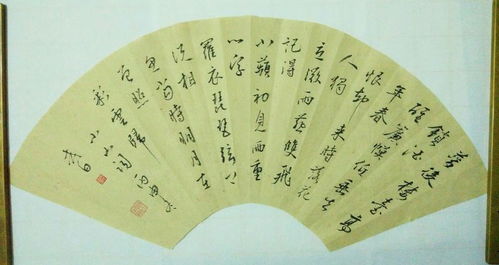 夢後樓臺高
鎖酒
醒簾幕低垂去
年春
恨却來時落花
人獨
立微雨燕雙飛
記得
小蘋初見兩重
心字
羅衣琵琶弦上
說相
思當時明月在
曾照
彩雲歸
小山詞